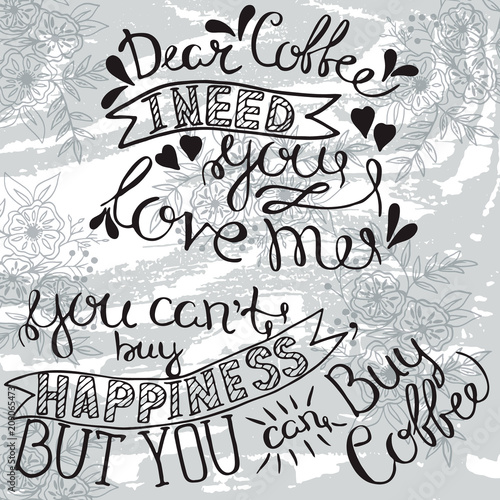 Dear Coffee
I NEED
you
love me
you can't
buy
HAPPINESS
BUT YOU
can
Buy
Coffee
209065473
Adobe Stock